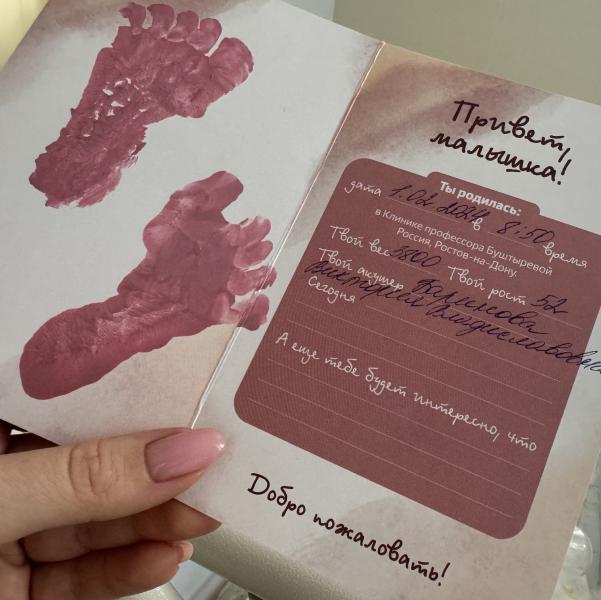 Привет,
малышка!
Ты родилась:
дата 1.02.2024 в 8:50 время
в Клинике профессора Буштыревой
Россия, Ростов-на-Дону.
Твой вес 3800 Твой рост 52
Твой акушер
Виктория Владиславовна
Сегодня
А еще тебе будет интересно, что
Добро пожаловать!